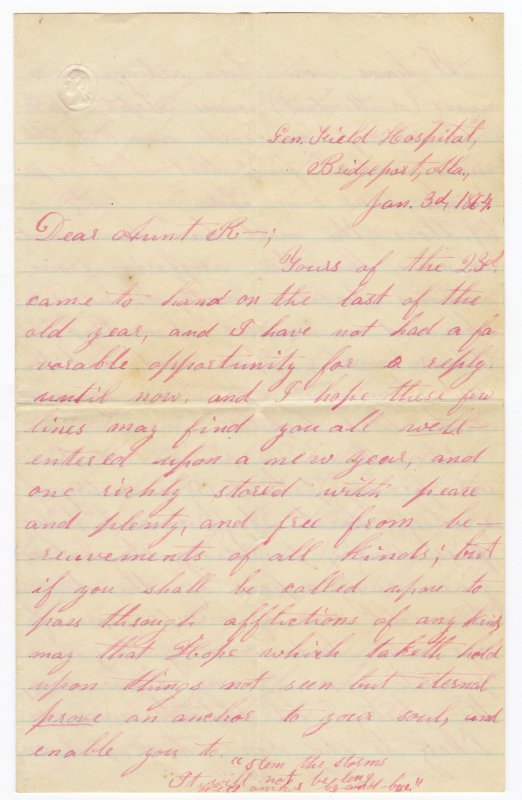 Gen. Field Hospital,
Bridgeport, Ala,
Jan. 3d, 1864.
Dear Aunt R—;
Yours of the 23d.
came to hand on the last of the
old year, and I have not had a fa
vorable opportunity for a reply.
until now, and I hope these few
lines may find you all well
entered upon a new year, and
one richly stored with peace
and plenty, and free from be—
reavements of all kinds; but
if you shall be called upon to
pass through afflictions of any kind
may that Hope which taketh hold
upon things not seen but eternal
prove an anchor to your soul, and
enable you to "stem the storms
It will not be long
by and bye"